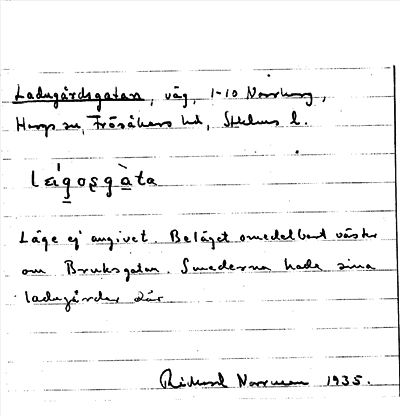 Ladugårdsgatan, väg, 1-10 Norrskog,
Hargs sn, Frösåkers hd, Sthlms l.
léi̯gosgàta
Läge ej angivet. Beläget omedelbart väster
om Bruksgatan. Smederna hade sina
ladugårdar där
Rickard Norrman 1935.